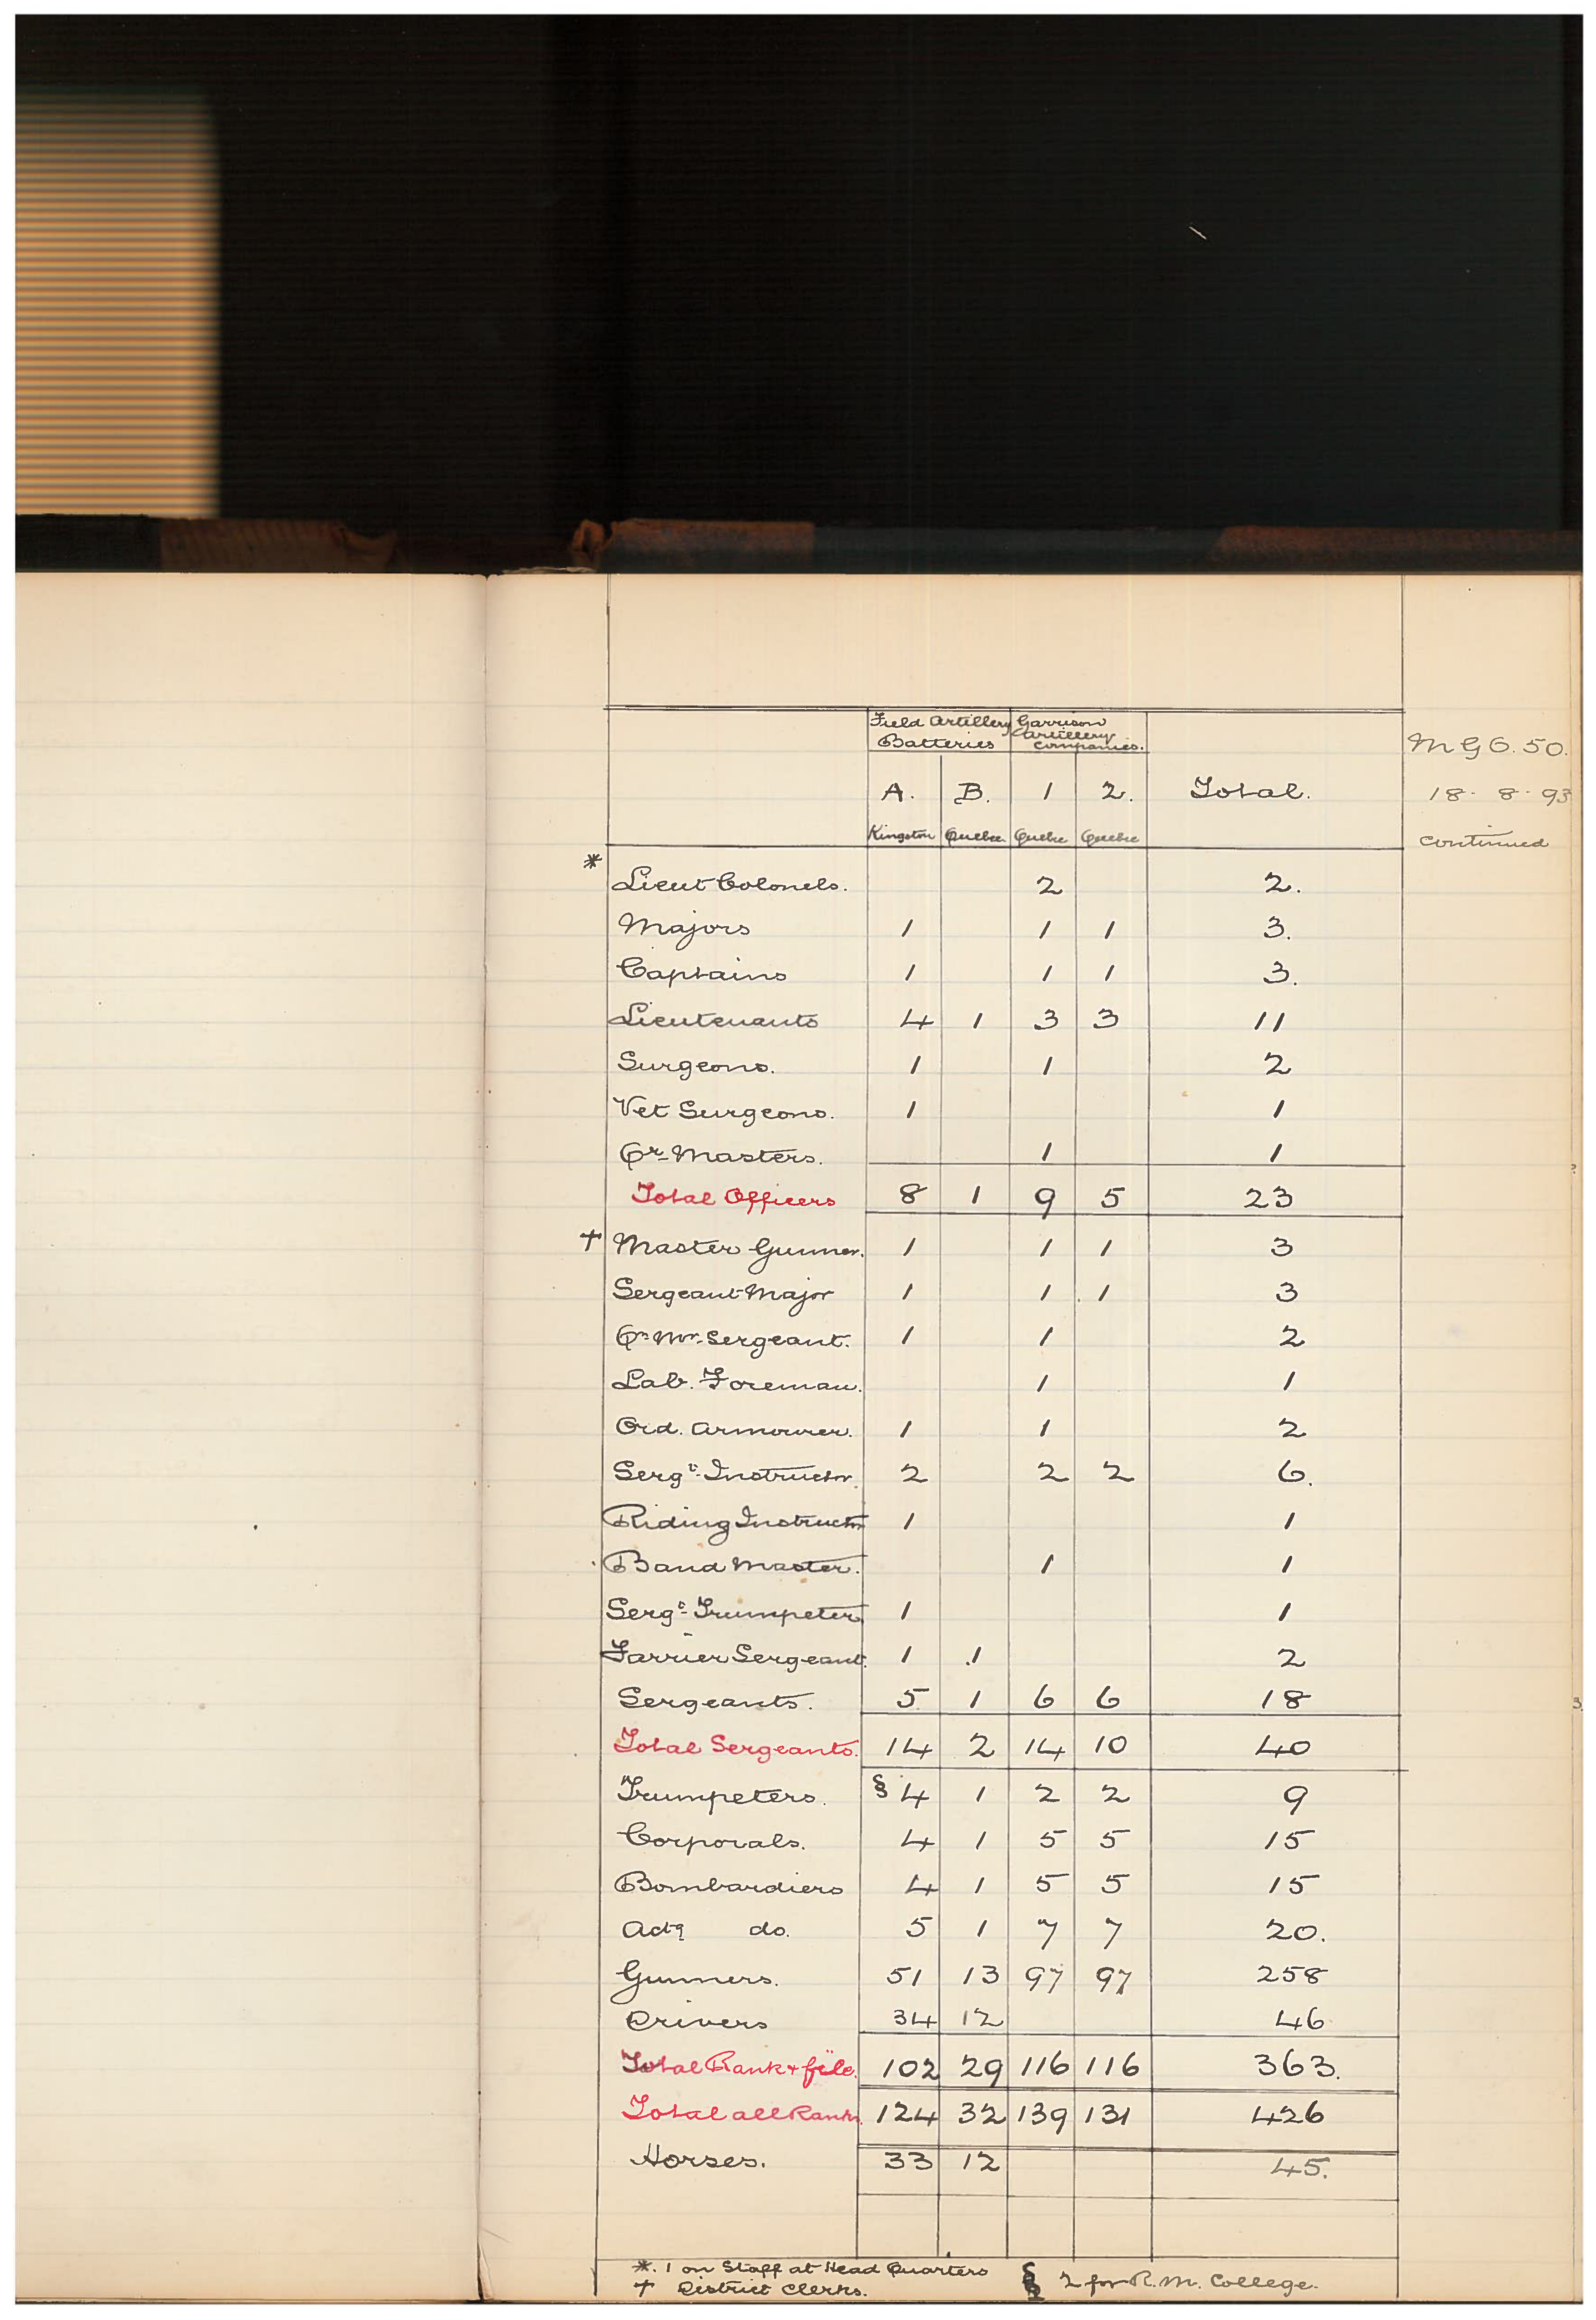 Field Artillery Batteries Garrison Artillery Companies.
A. B. 1 2. Total.
Kingston Quebec Quebec Quebec
M G O. 50.
18. 8. 93
continued
* Lieut Colonels. 2 2.
Majors 1 1 1 3.
Captains 1 1 1 3.
Lieutenants 4 1 3 3 11
Surgeons. 1 1 2
Vet Surgeons. 1 1
Qr-Masters. 1 1
Total Officers 8 1 9 5 23
† Master Gunner. 1 1 1 3
Sergeant Major 1 1 1 3
Qr Mr-Sergeant. 1 1 2
Lab. Foreman. 1 1
Ord. Armourer. 1 1 2
Sergt-Instructor. 2 2 2 6.
Riding Instructor 1 1
Band Master. 1 1
Sergt-Trumpeter 1 1
Farrier Sergeant. 1 1 2
Sergeants. 5 1 6 6 18
Total Sergeants. 14 2 14 10 40
Trumpeters. § 4 1 2 2 9
Corporals. 4 1 5 5 15
Bombardiers 4 1 5 5 15
Actg do. 5 1 7 7 20.
Gunners. 51 13 97 97 258
Drivers 34 12 46
Total Rank + file. 102 29 116 116 363.
Total all Ranks 124 32 139 131 426
Horses. 33 12 45.
*. 1 on Staff at Head Quarters
† District Clerks.
§ 2 for R.M. College.